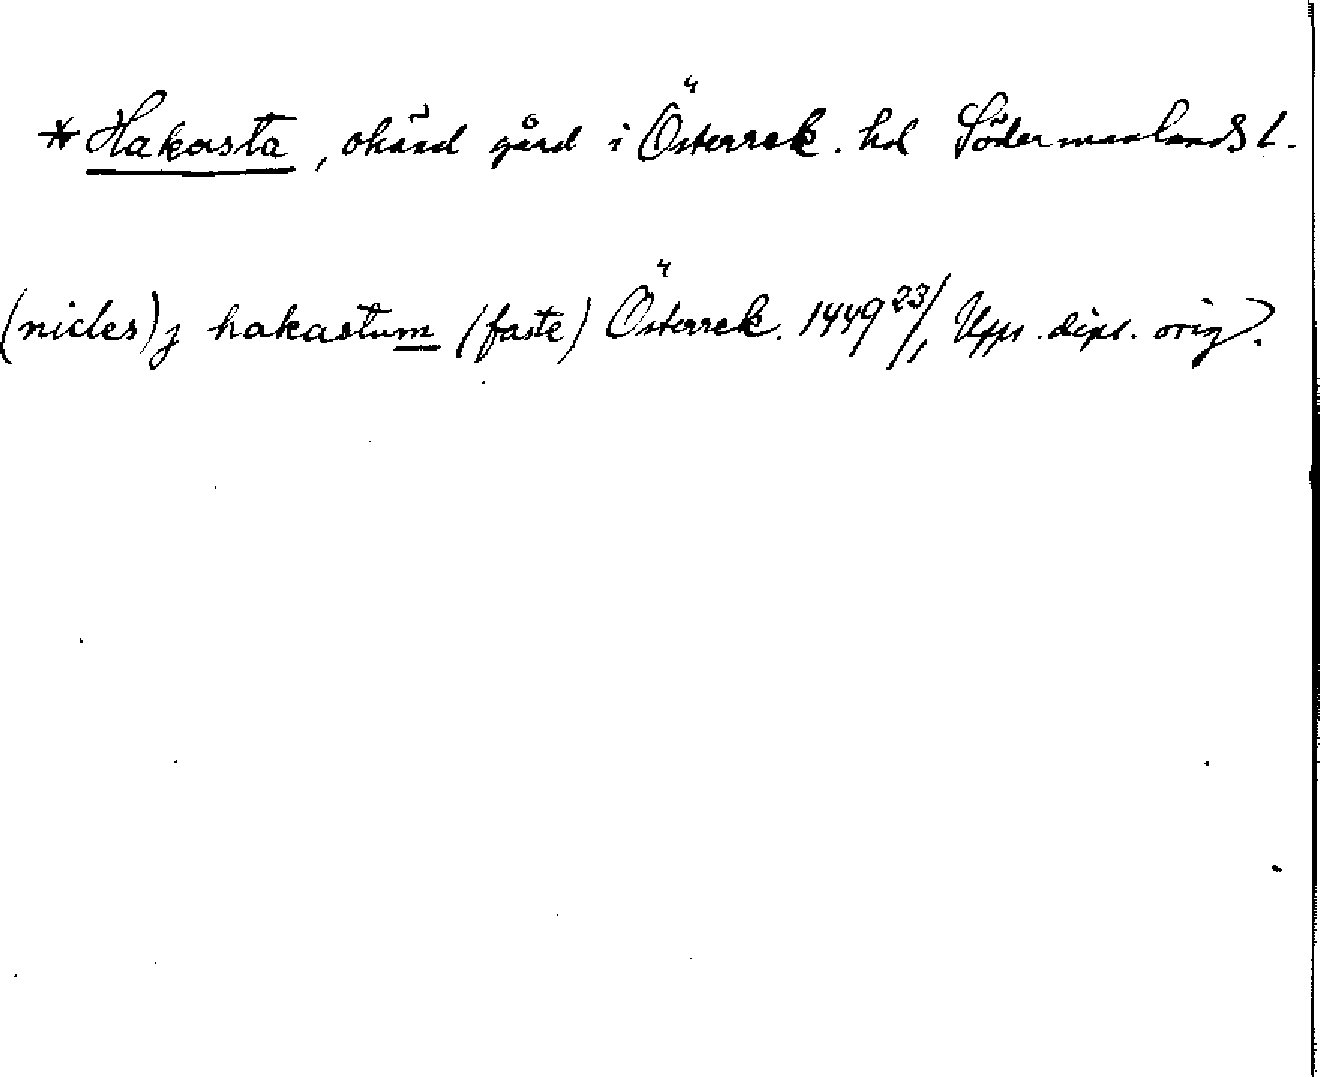 * Hakasta, okänd gård i Österrek. hd Södermanlands l.
(nicles) j hakastum (faste) Österrek. 1449 23/1 Upps. dipl. orig.